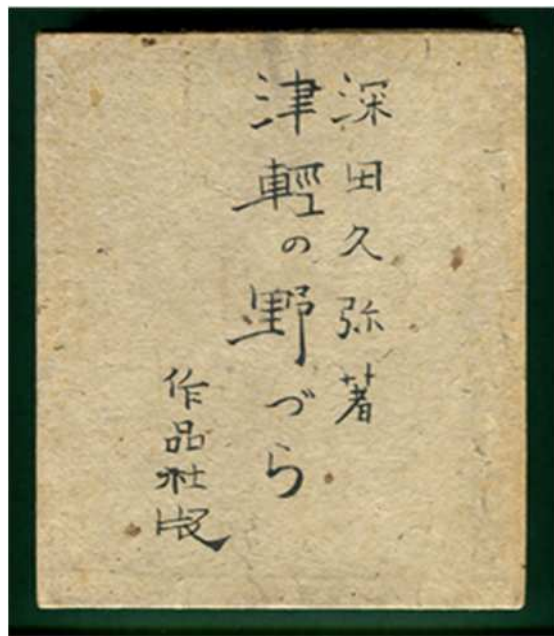 深田久弥著
津輕の野づら
作品社版